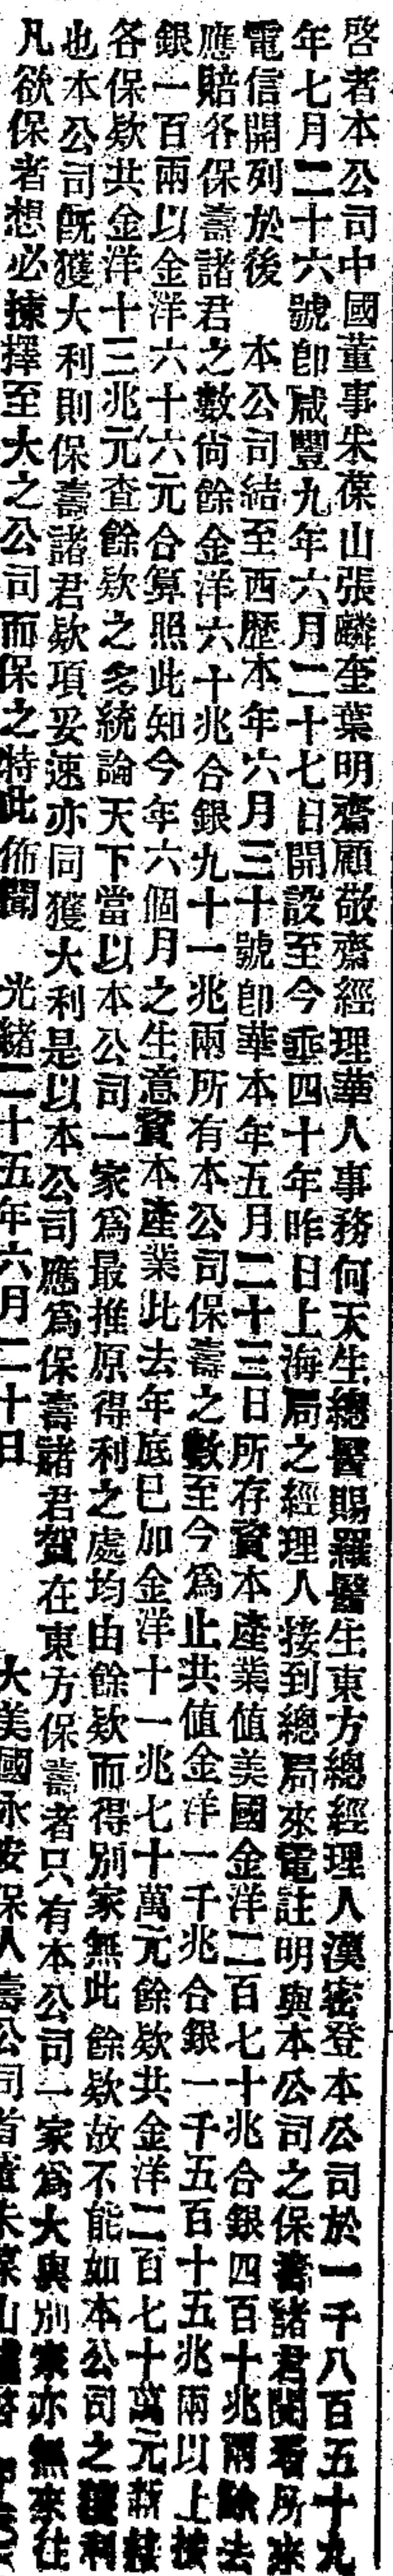 啓者本公司中國董事朱葆山張麟奎葉明齋顧敬齋經理華人事務何天生總醫賜羅醫生東方總經理人漢密登本公司於一千八百五十九
年七月二十六號卽咸豐九年六月二十七日開設至今垂四十年昨日上海局之經理人接到總局來電註明與本公司之保壽諸君閱看所來
電信開列於後　本公司結至西歷本年六月三十號卽華本年五月二十三日所存資本產業值美國金洋二百七十兆合銀四百十兆兩除去
應賠各保壽諸君之數尙餘金洋六十兆合銀九十一兆兩所有本公司保壽之數至今爲止共值金洋一千兆合銀一千五百十五兆兩以上按
銀一百兩以金洋六十六元合算照此知今年六個月之生意資本產業比去年底已加金洋十一兆七十萬元餘欵共金洋二百七十萬元新接
各保欵共金洋十三兆元查餘欵之多統論天下當以本公司一家爲最推原得利之處均由餘欵而得別家無此餘欵故不能如本公司之獲利
也本公司旣獲大利則保壽諸君欵項妥速亦同獲大利是以本公司應爲保壽諸君賀在東方保壽者只有本公司一家爲大與別家亦無來往
凡欲保者想必揀擇至大之公司而保之特此佈聞　光緒二十五年六月二十日　大美國永安保人壽公司首董朱葆山謹啓